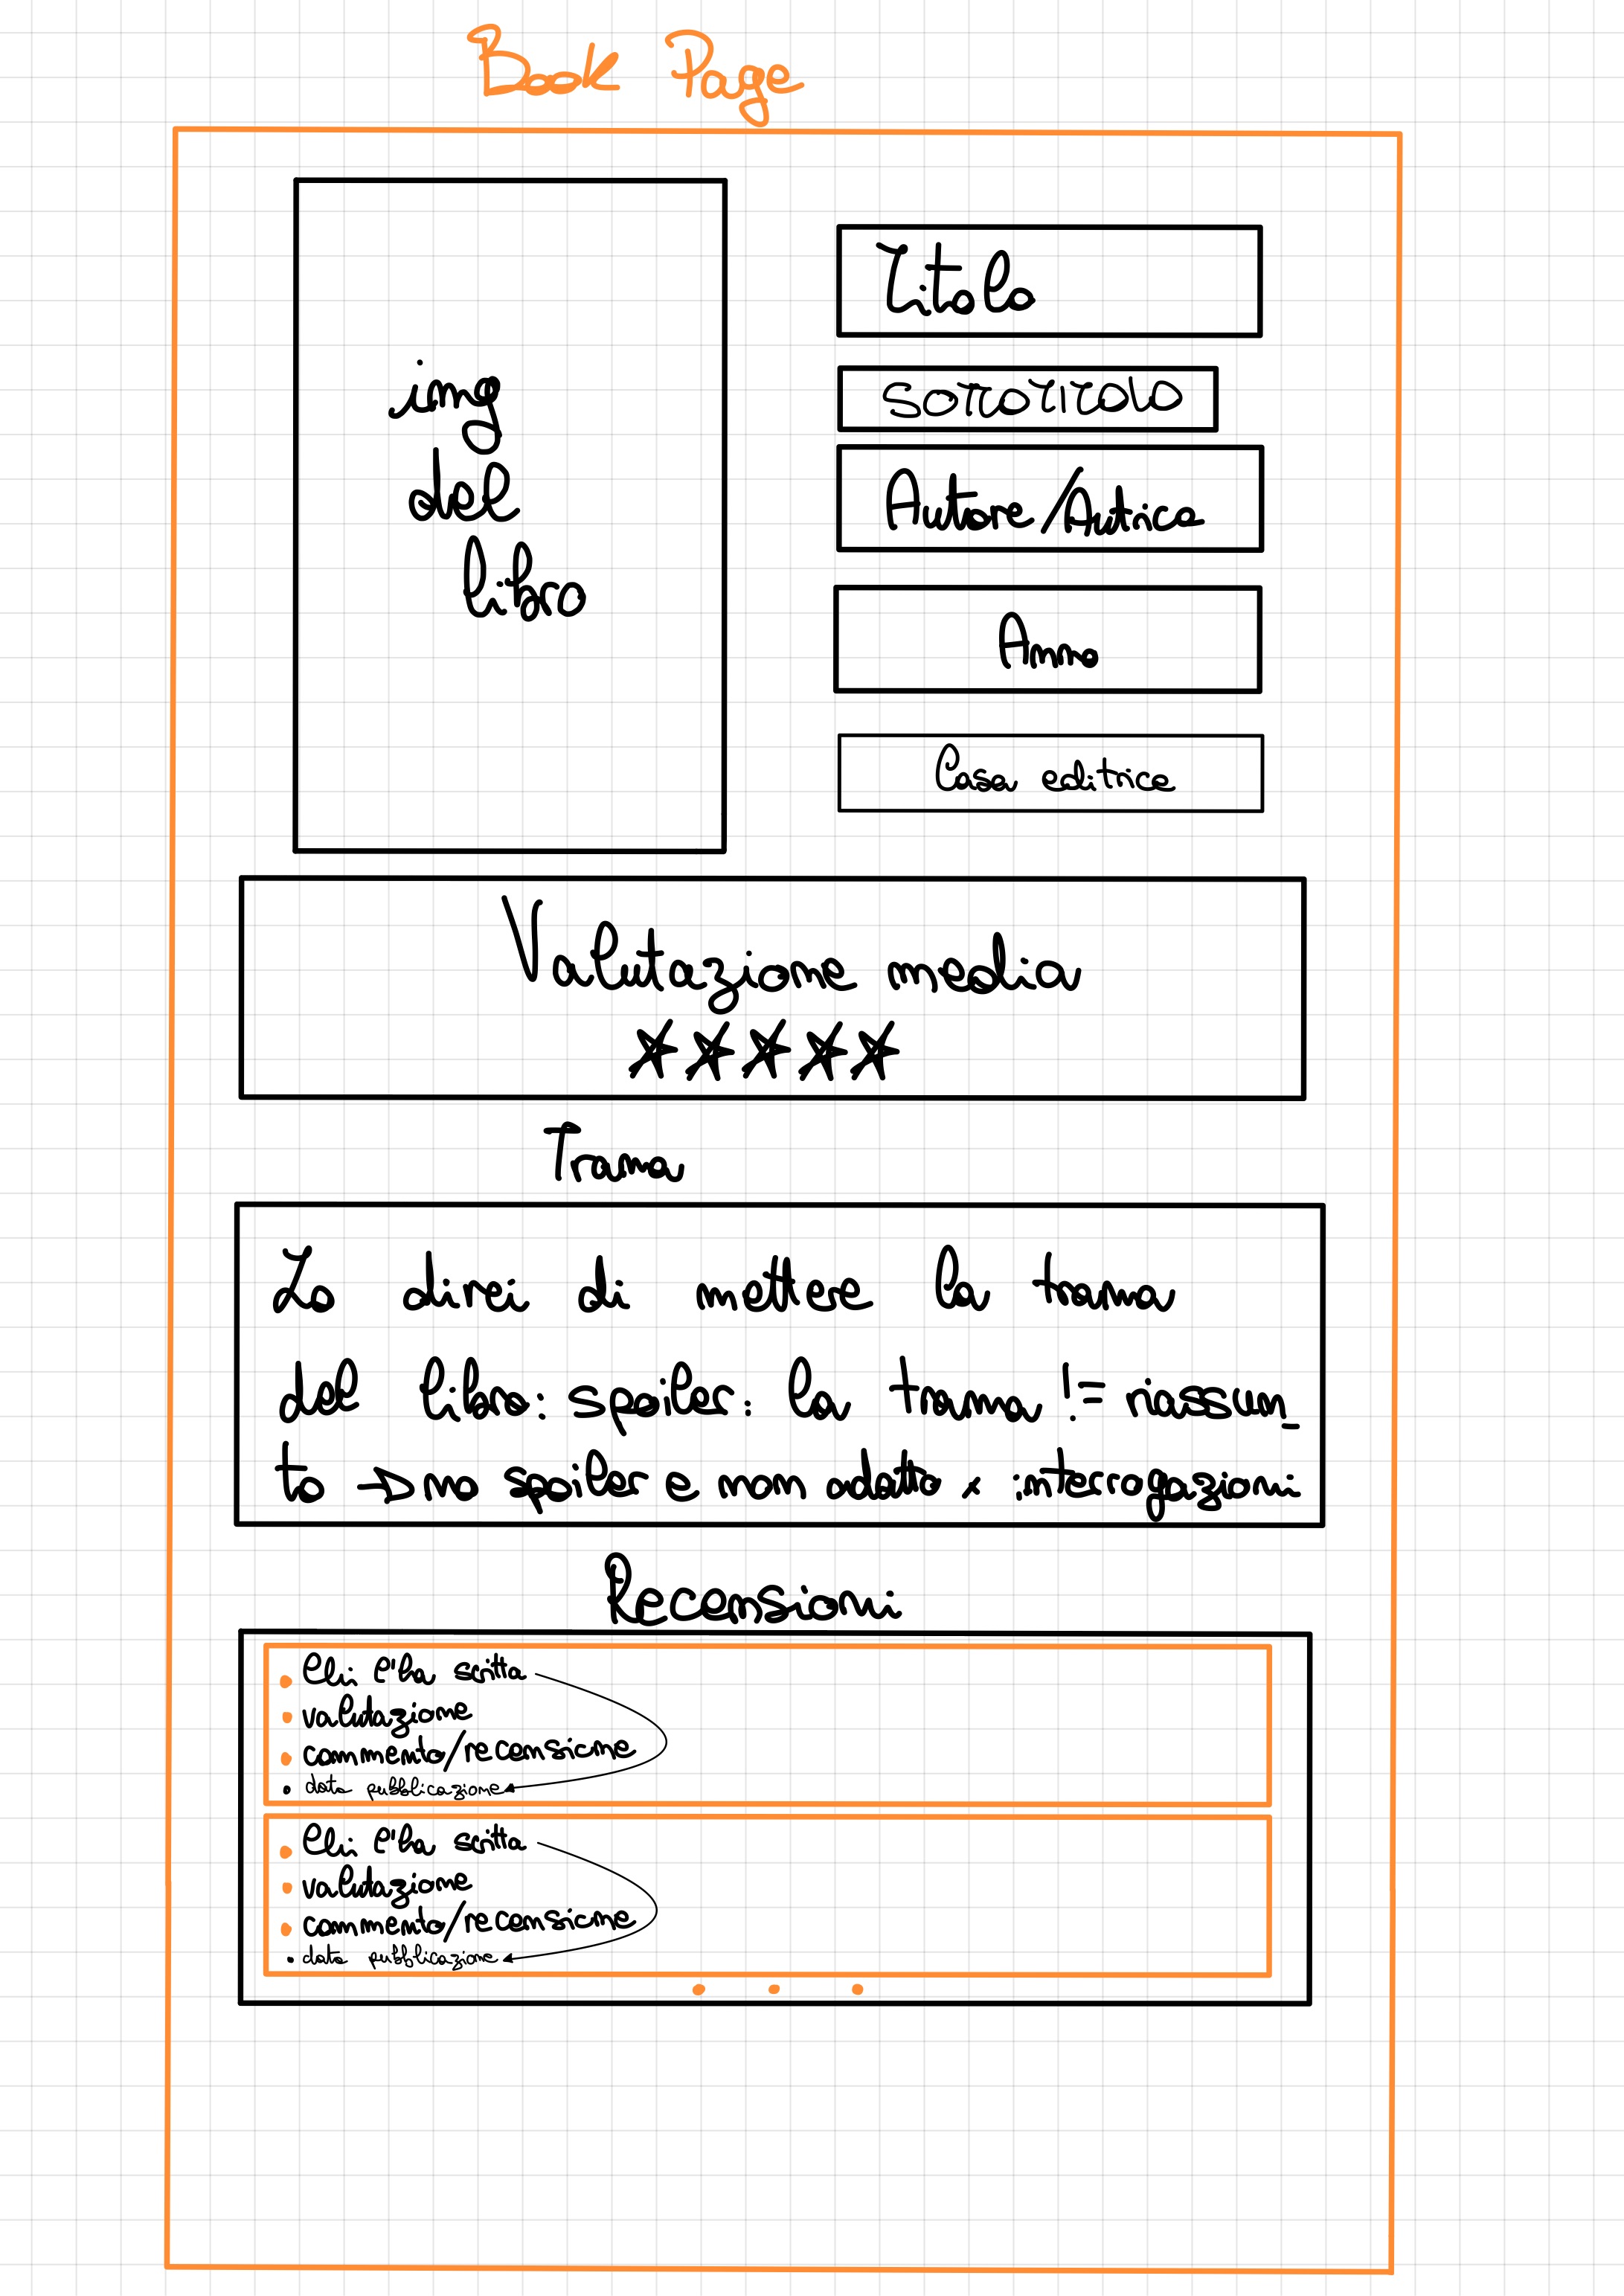 Book Page
img
del
libro
Titolo
SOTTOTITOLO
Autore/Autrice
Anno
Casa editrice
Valutazione media
Trama
Io direi di mettere la trama
del libro: spoiler: la trama != riassun_
to → no spoiler e non adatto x interrogazioni
Recensioni
• Chi l'ha scritta
• valutazione
• commento/recensione
• data pubblicazione
• Chi l'ha scritta
• valutazione
• commento/recensione
• data pubblicazione